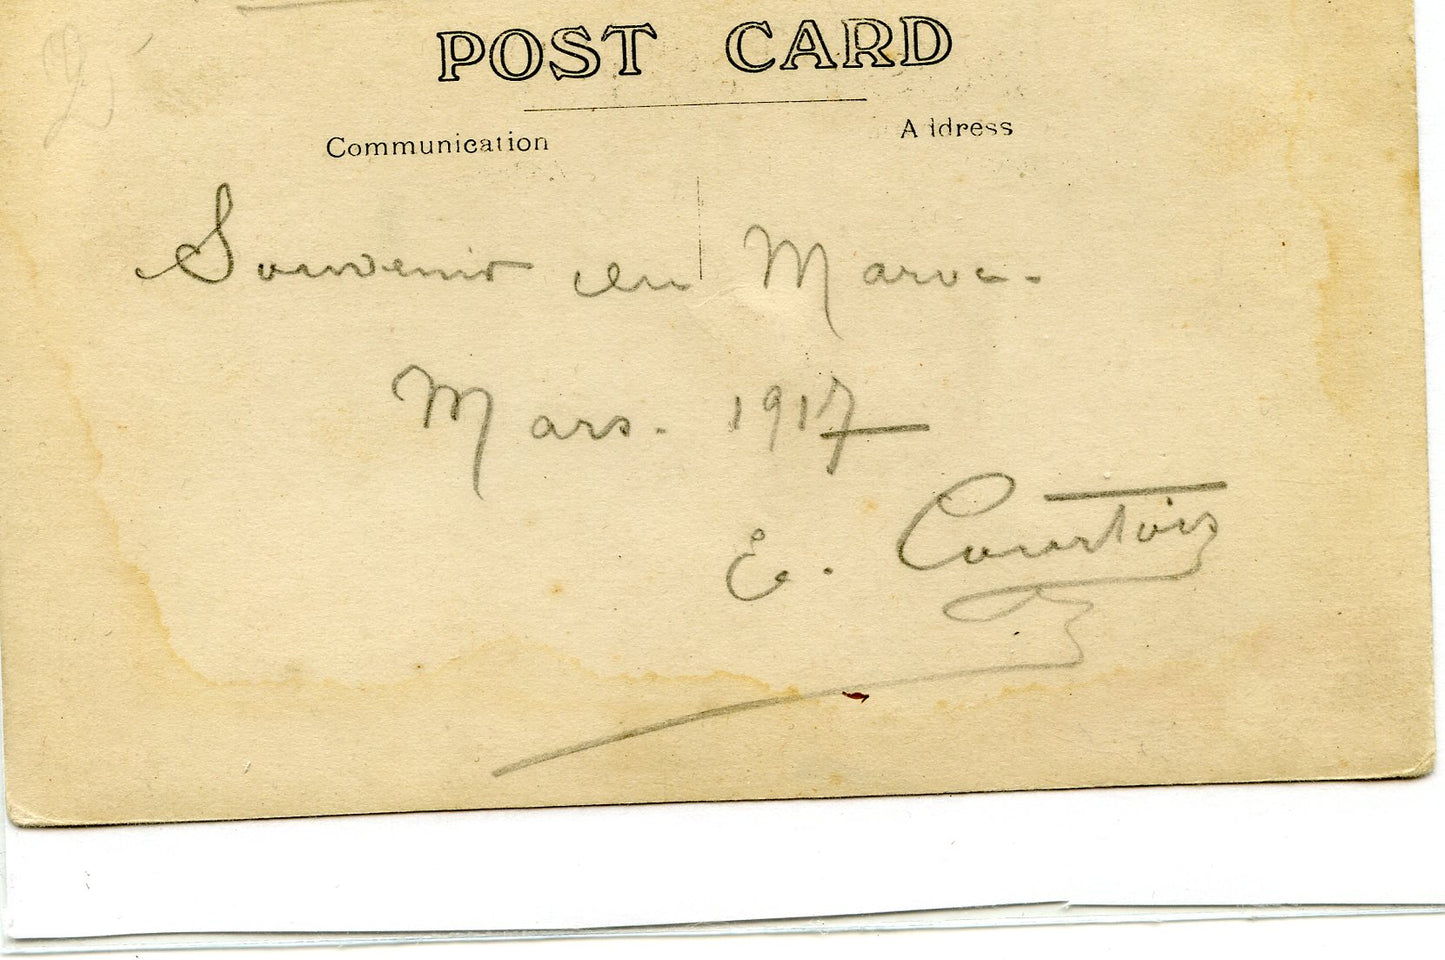 POST CARD
Communication
Address
Souvenir du Maroc.
Mars. 1917
E. Courtois